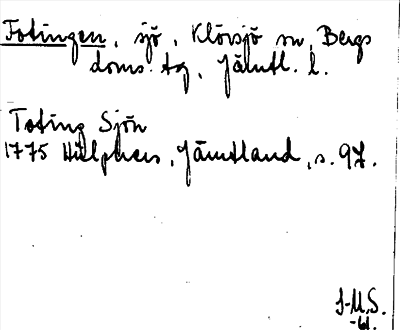 Fotingen, sjö, Klövsjö sn, Bergs
doms. tg, Jämtl. l.
Foting Sjön
1775 Hülphers, Jämtland, s. 97.
J-M.S.
-61.